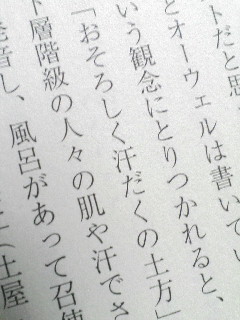 トだと思
とオーウェルは書いてい
いう観念にとりつかれると、
「おそろしく汗だくの土方」
ト層階級の人々の肌や汗でさ
発音し、風呂があって召使
(土屋